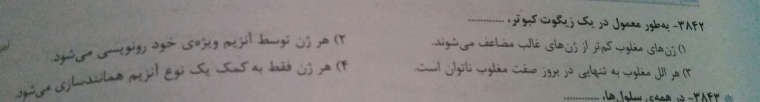 ۳۸۴۲- به‌طور معمول در یک زیگوت کبوتر، ............
۱) ژن‌های مغلوب کم‌تر از ژن‌های غالب مضاعف می‌شوند.
۲) هر ژن توسط آنزیم ویژه‌ی خود رونویسی می‌شود.
۳) هر الل مغلوب به تنهایی در بروز صفت مغلوب ناتوان است.
۴) هر ژن فقط به کمک یک نوع آنزیم همانندسازی می‌شود.
۳۸۴۳- در همه‌ی سلول‌ها، ............